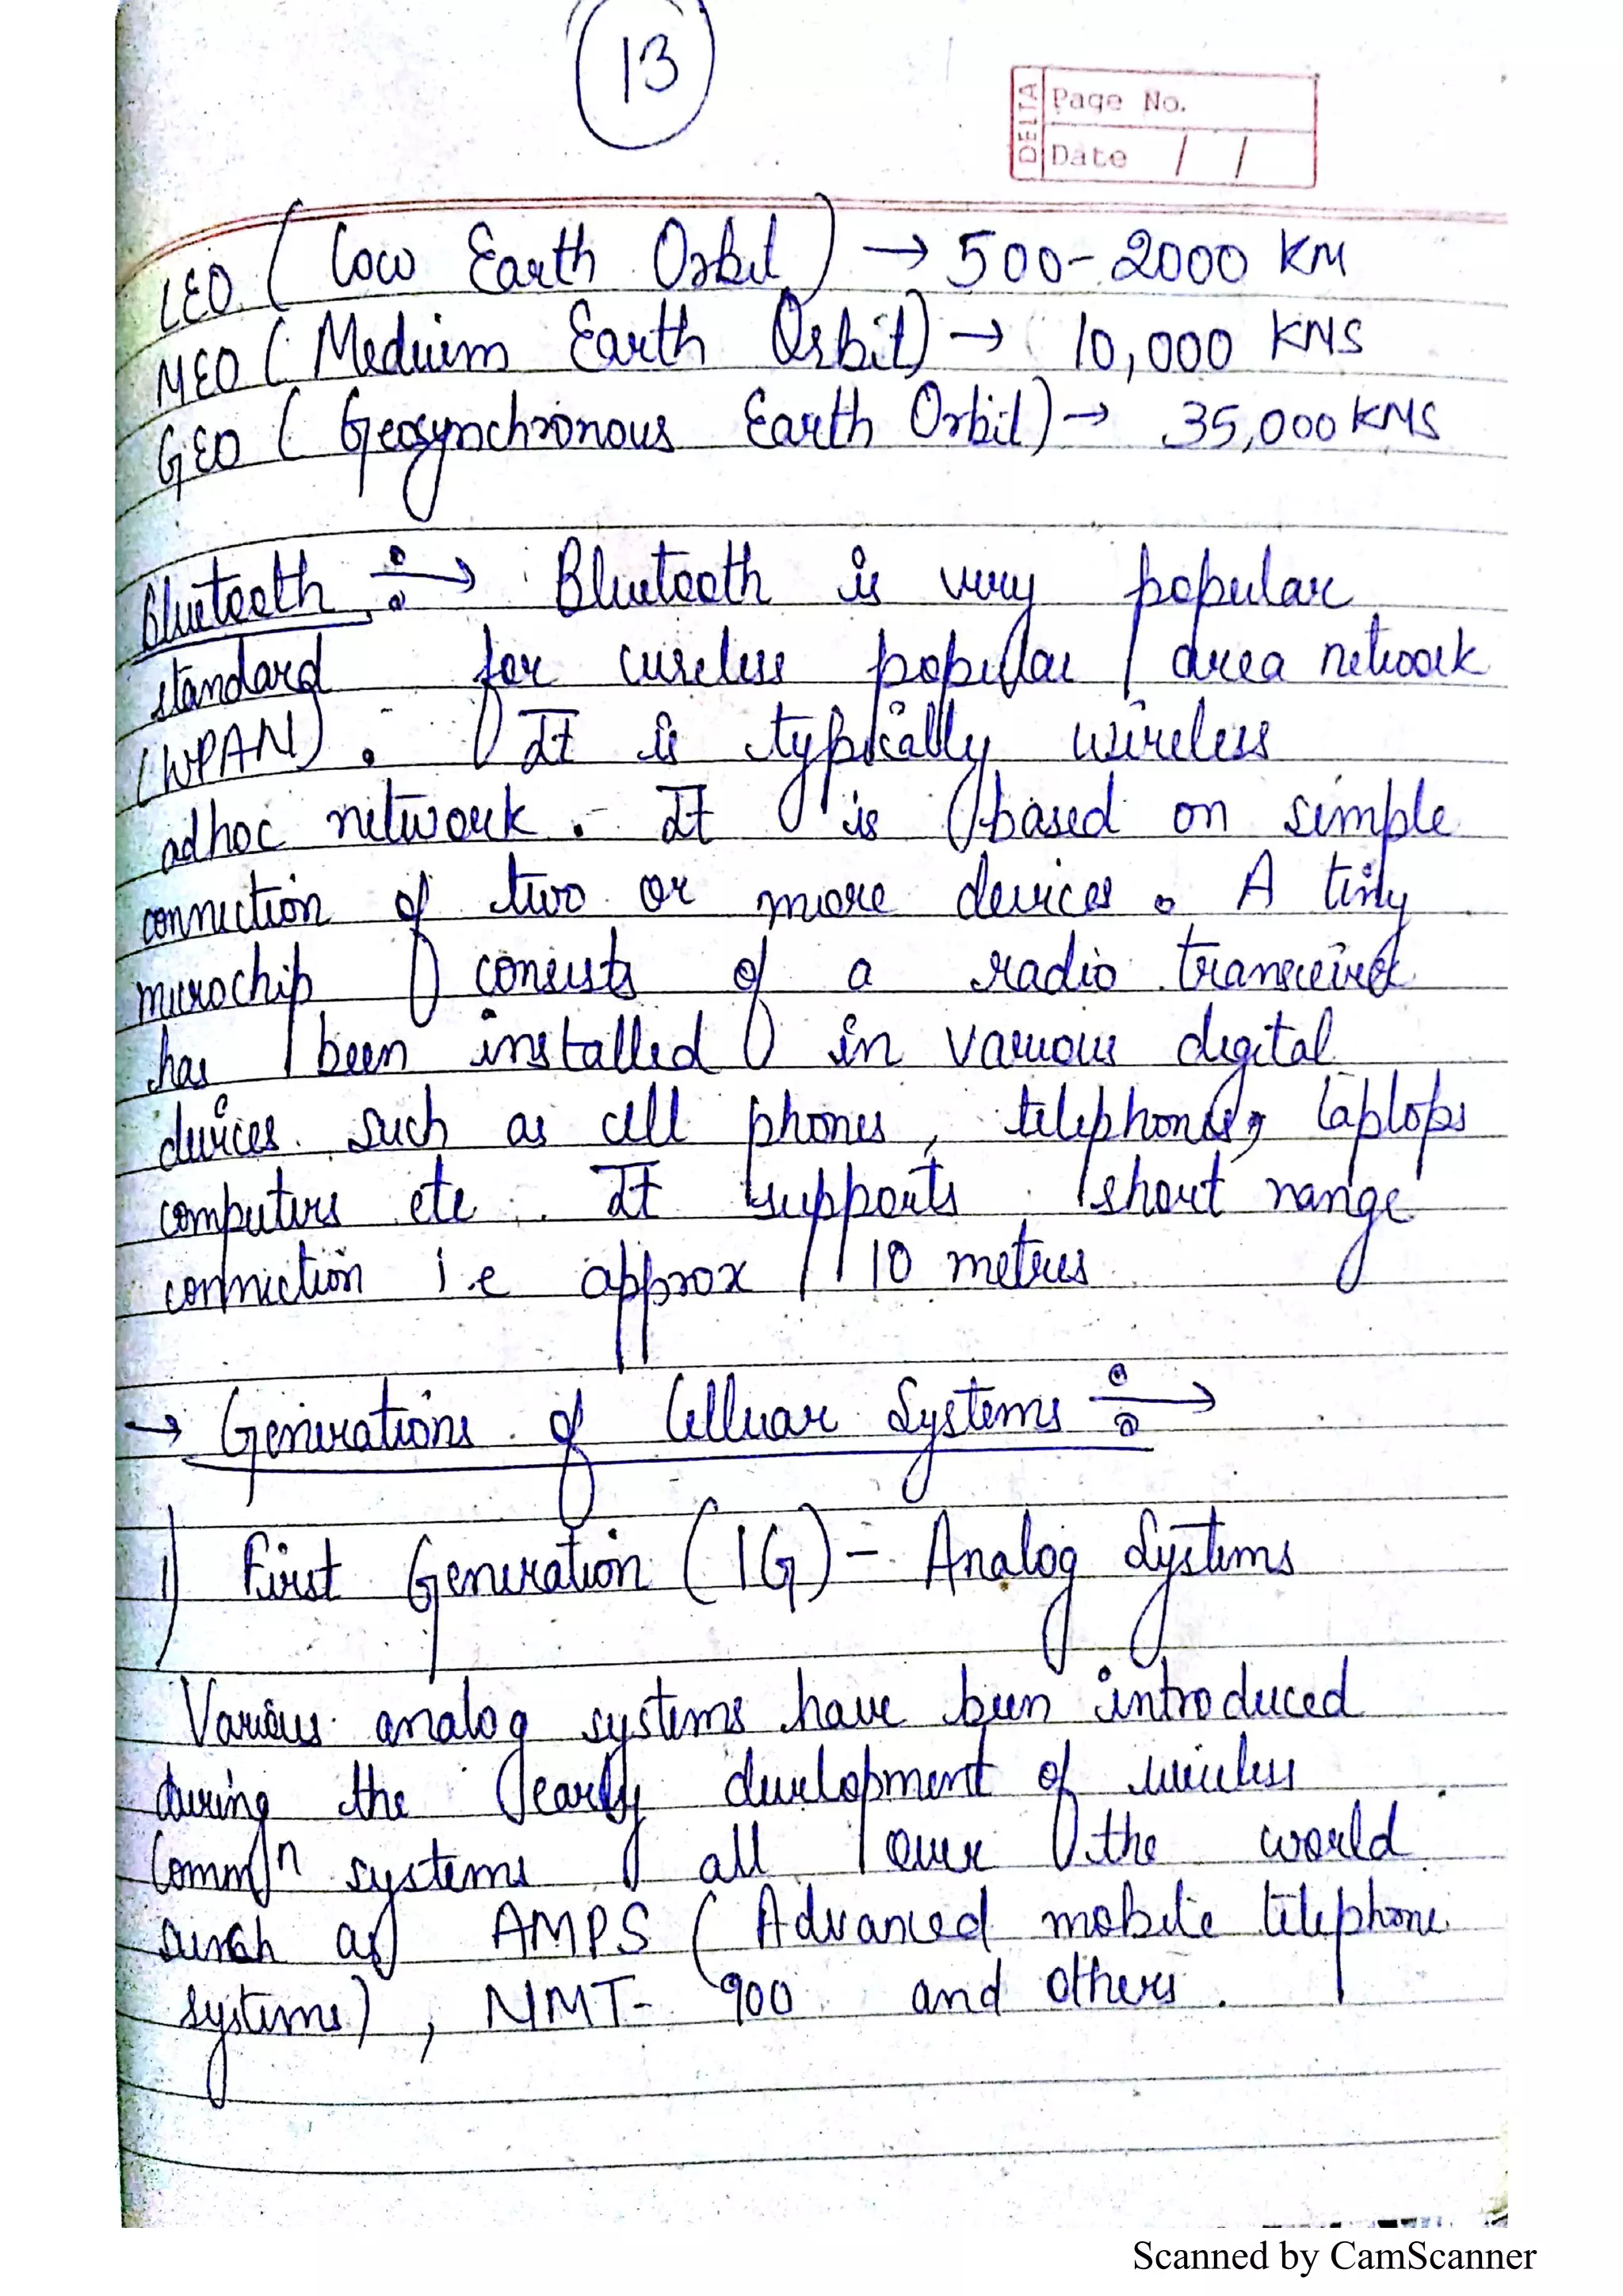 13
DELTA
Page No.
Date / /
LEO (Low Earth Orbit) → 500-2000 KM
MEO (Medium Earth Orbit) → 10,000 KMS
GEO (Geosynchronous Earth Orbit) → 35,000 KMS
Bluetooth ÷→ Bluetooth is very popular
standard for wireless popular area network
(WPAN). It is typically wireless
adhoc network. It is based on simple
connection of two or more devices. A tiny
microchip consists of a radio transceiver
has been installed in various digital
devices such as cell phones, telephones, laptops
computers etc. It supports short range
connection i.e approx 10 metres
→ Generations of Celluar Systems ÷→
1) First Generation (1G) - Analog Systems
Various analog systems have been introduced
during the early development of wireless
Commⁿ systems all over the world
such as AMPS (Advanced mobile telephone
systems), NMT-900 and others.
Scanned by CamScanner